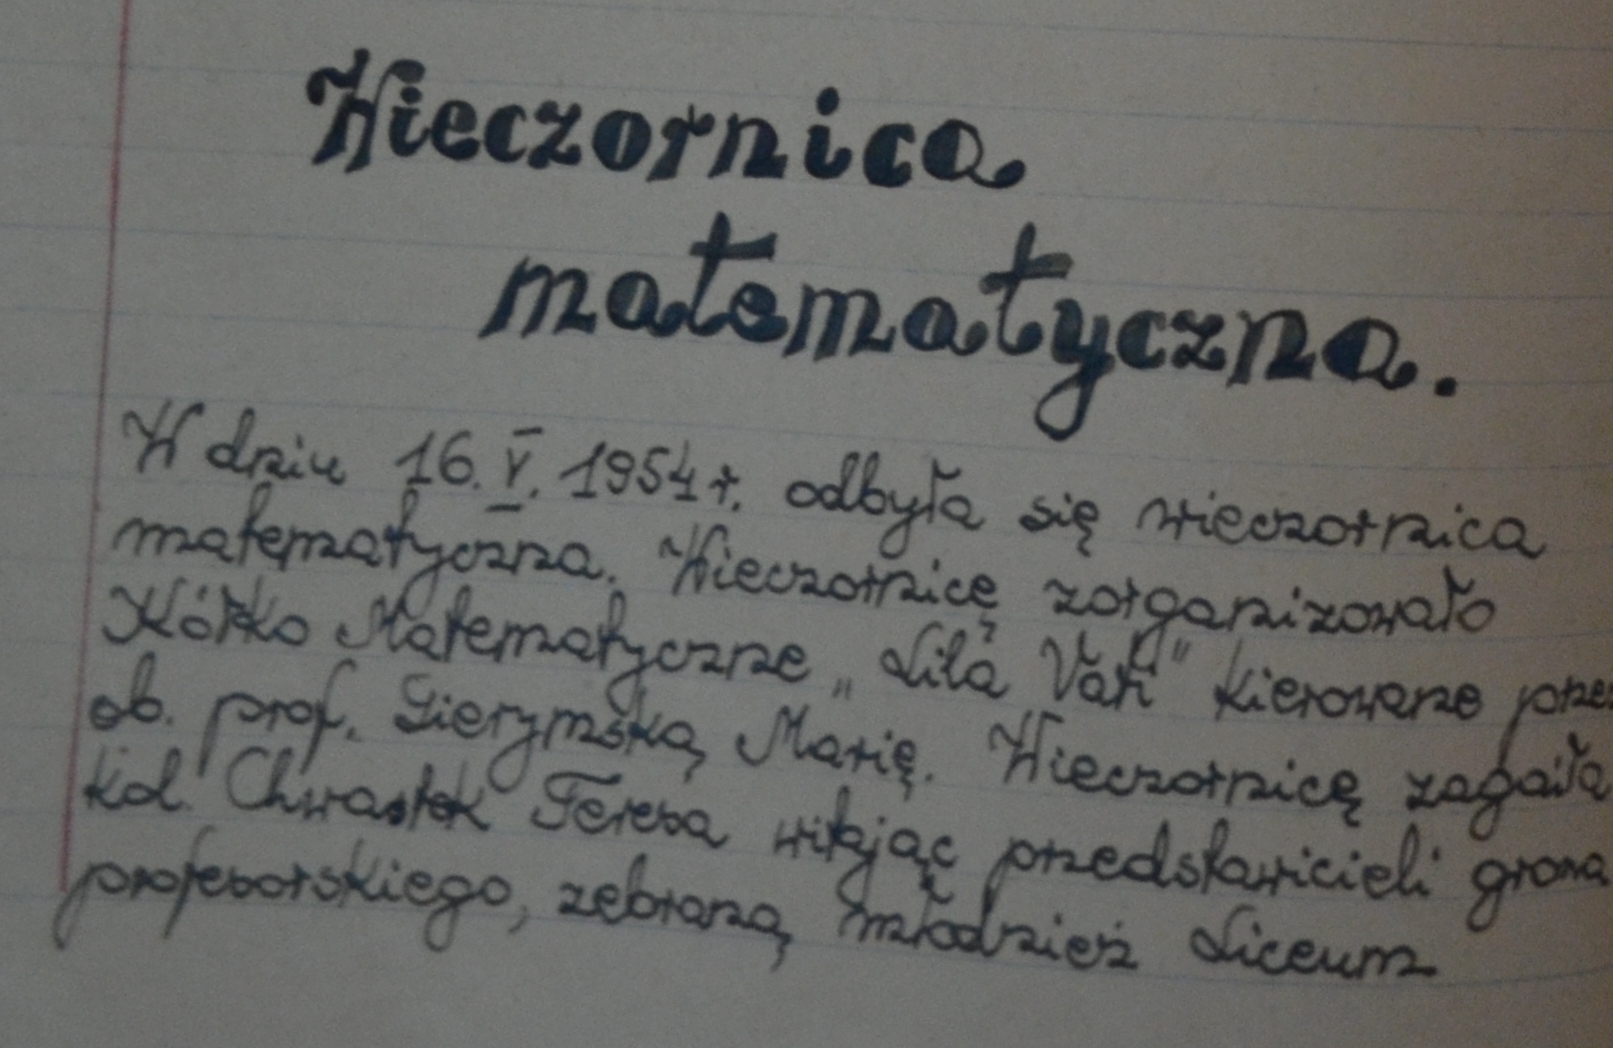 Wieczornica
matematyczna.
W dniu 16.V.1954 r. odbyła się wieczornica
matematyczna. Wieczornicę zorganizowało
Kółko Matematyczne „Lilavati" kierowane prze
ob. prof. Gierymską Marię. Wieczornicę zagaiła
kol. Chwastek Teresa witając przedstawicieli grona
profesorskiego, zebraną młodzież Liceum